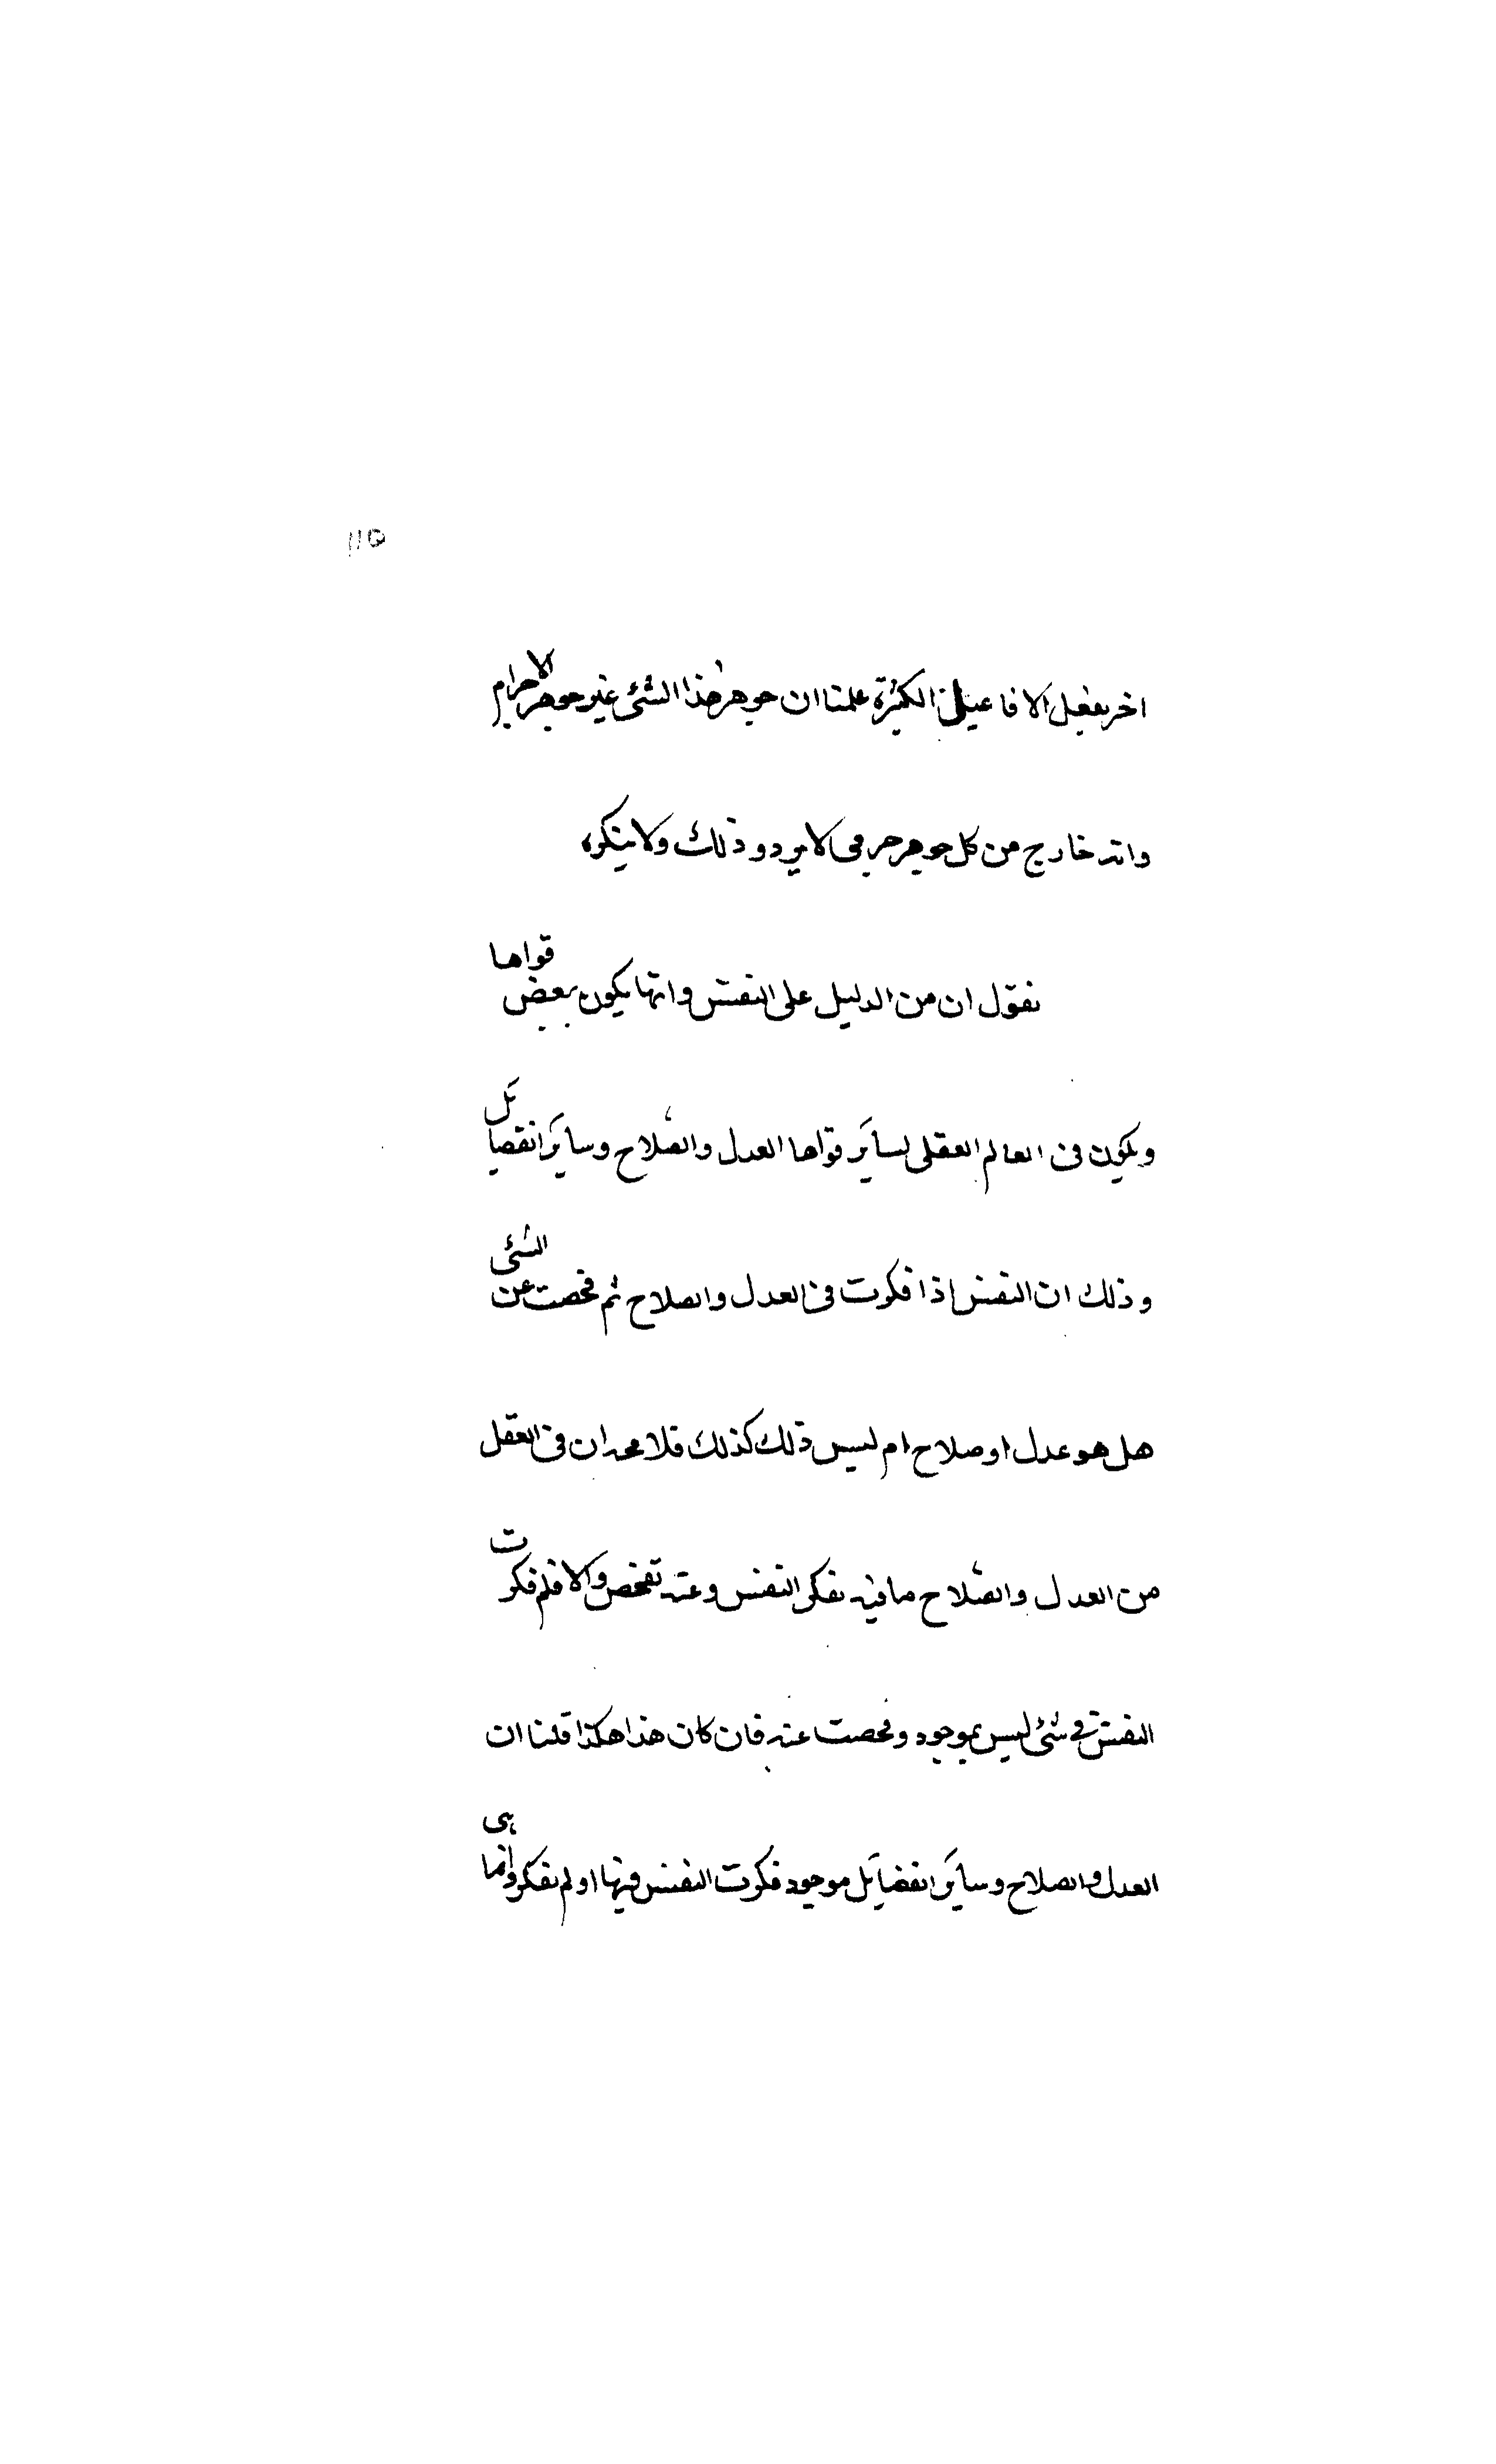 ١١٥
اخر يفعل الافاعيل الكثيرة علمنا ان جوهر هذا الشئ غير جوهر الاجرام
وانه خارج من كل جوهر جرمى لا يرد ذلك ولا ينكره
نقول ان من الدليل على النفس وانها يكون ببعض قواها
ويكون فى العالم العقلى لسائر قواها العدل والصّلاح وسائر الفضائل
وذلك ان النفس اذا فكرت فى العدل والصلاح ثم فحصت عن الشئ
هل هو عدل او صلاح ام ليس ذلك كذلك فلا محد ان فى العقل
من العدل والصّلاح ما فيه تفكر النفس وعنه تفحص والا فلم فكرت
النفس فى شئ ليس بموجود وفحصت عنه فان كان هذا هكذا قلنا ان
العدل والصلاح وسائر الفضائل موجود فكرت النفس فيها او لم تفكر وانما هى